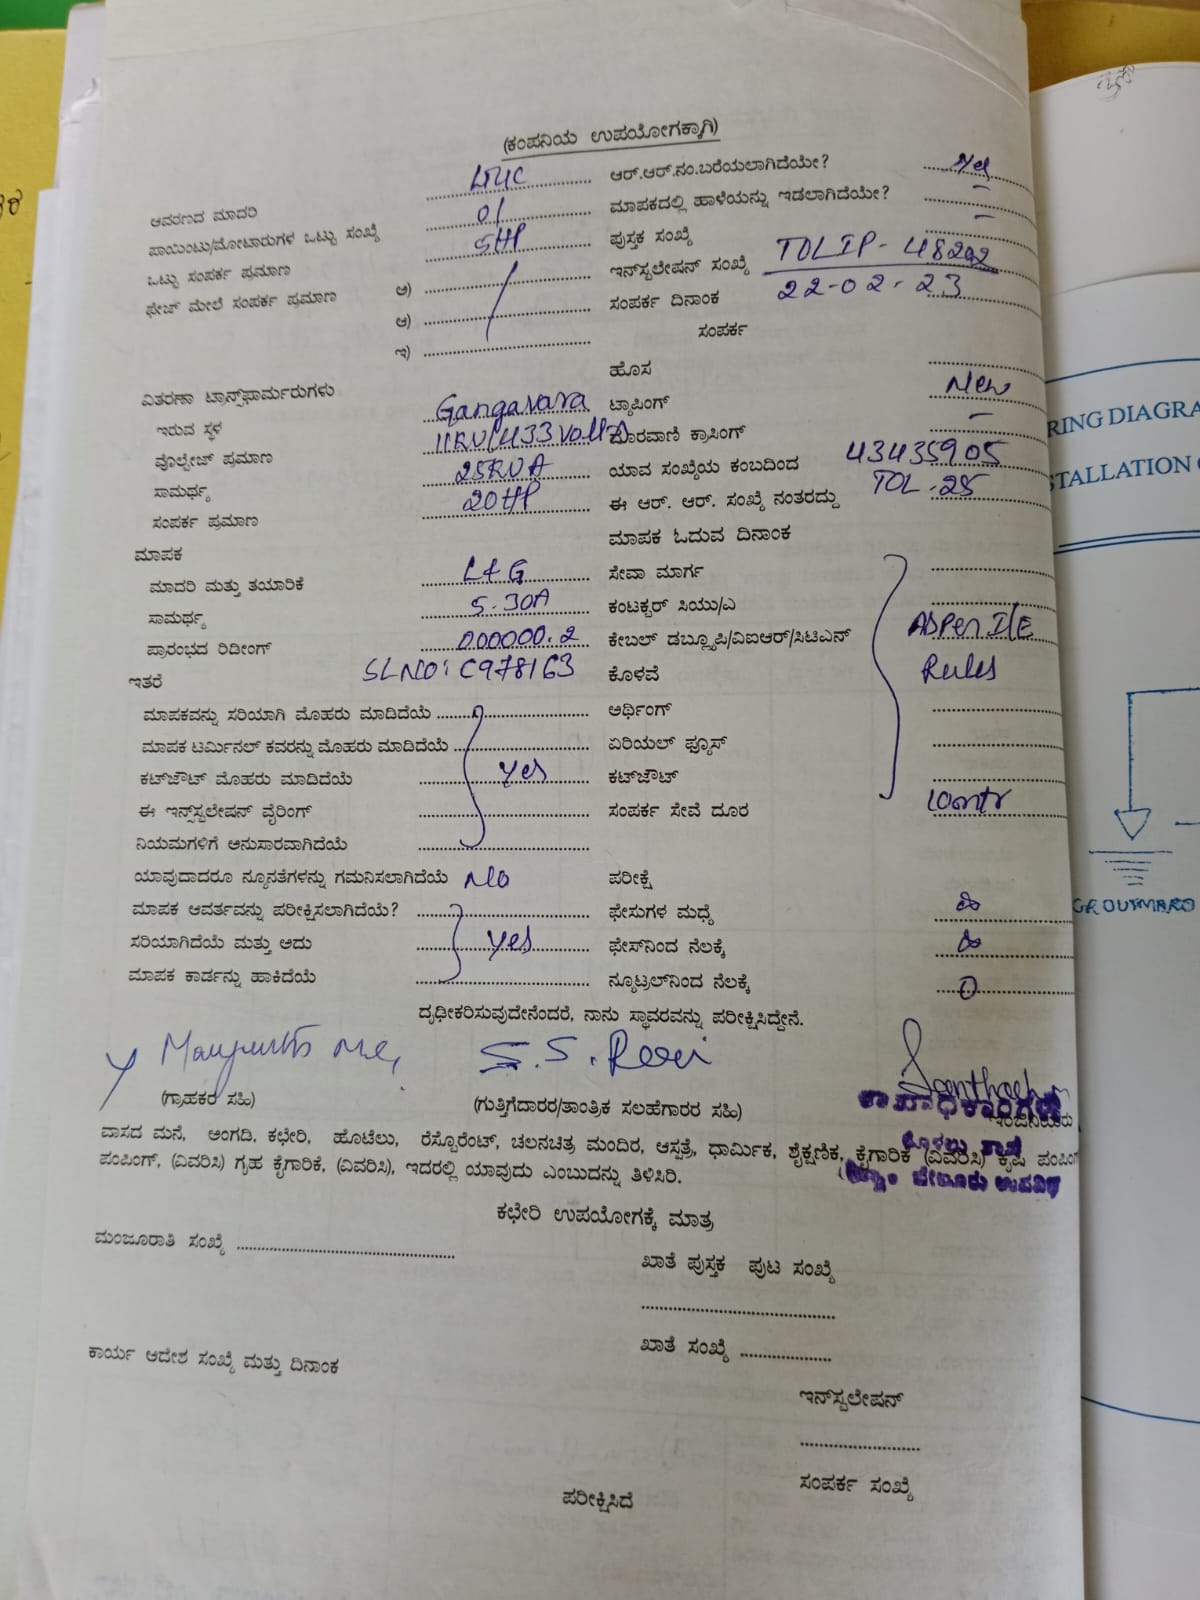 (ಕಂಪನಿಯ ಉಪಯೋಗಕ್ಕಾಗಿ)
ಆವರಣದ ಮಾದರಿ ಆರ್.ಆರ್.ನಂ.ಬರೆಯಲಾಗಿದೆಯೇ? Yes
ಪಾಯಿಂಟು/ಮೋಟಾರುಗಳ ಒಟ್ಟು ಸಂಖ್ಯೆ 01 ಮಾಪಕದಲ್ಲಿ ಹಾಳೆಯನ್ನು ಇಡಲಾಗಿದೆಯೇ? –
ಒಟ್ಟು ಸಂಪರ್ಕ ಪ್ರಮಾಣ 5HP ಪುಸ್ತಕ ಸಂಖ್ಯೆ –
ಫೇಜ್ ಮೇಲೆ ಸಂಪರ್ಕ ಪ್ರಮಾಣ ಅ) ಇನ್‌ಸ್ಟಲೇಷನ್ ಸಂಖ್ಯೆ
ಆ) ಸಂಪರ್ಕ ದಿನಾಂಕ 22-02-23
ಇ) ಸಂಪರ್ಕ
ವಿತರಣಾ ಟ್ರಾನ್ಸ್‌ಫಾರ್ಮರುಗಳು ಹೊಸ New
ಇರುವ ಸ್ಥಳ Gangavara ಟ್ಯಾಪಿಂಗ್ –
ವೊಲ್ಟೇಜ್ ಪ್ರಮಾಣ 11KV/433Volts ದೂರವಾಣಿ ಕ್ರಾಸಿಂಗ್
ಸಾಮರ್ಥ್ಯ 25KVA ಯಾವ ಸಂಖ್ಯೆಯ ಕಂಬದಿಂದ 43435905
ಸಂಪರ್ಕ ಪ್ರಮಾಣ 20HP ಈ ಆರ್. ಆರ್. ಸಂಖ್ಯೆ ನಂತರದ್ದು TOL-25
ಮಾಪಕ ಮಾಪಕ ಓದುವ ದಿನಾಂಕ
ಮಾದರಿ ಮತ್ತು ತಯಾರಿಕೆ L&G ಸೇವಾ ಮಾರ್ಗ
ಸಾಮರ್ಥ್ಯ 5-30A ಕಂಟಕ್ಟರ್ ಸಿಯು/ಎ
ಪ್ರಾರಂಭದ ರಿಡೀಂಗ್ 000000.2 ಕೇಬಲ್ ಡಬ್ಲ್ಯೂಪಿ/ವಿಐಆರ್/ಸಿಟಿಎಸ್ As Per I/E
ಇತರೆ SLNO: C978163 ಕೊಳವೆ Rules
ಮಾಪಕವನ್ನು ಸರಿಯಾಗಿ ಮೊಹರು ಮಾಡಿದೆಯೆ ಅರ್ಥಿಂಗ್
ಮಾಪಕ ಟರ್ಮಿನಲ್ ಕವರನ್ನು ಮೊಹರು ಮಾಡಿದೆಯೆ ಏರಿಯಲ್ ಫ್ಯೂಸ್
ಕಟ್‌ಔಟ್ ಮೊಹರು ಮಾಡಿದೆಯೆ Yes ಕಟ್‌ಔಟ್
ಈ ಇನ್‌ಸ್ಟಲೇಷನ್ ವೈರಿಂಗ್ ಸಂಪರ್ಕ ಸೇವೆ ದೂರ 10mtr
ನಿಯಮಗಳಿಗೆ ಅನುಸಾರವಾಗಿದೆಯೆ
ಯಾವುದಾದರೂ ನ್ಯೂನತೆಗಳನ್ನು ಗಮನಿಸಲಾಗಿದೆಯೆ No ಪರೀಕ್ಷೆ
ಮಾಪಕ ಆವರ್ತವನ್ನು ಪರೀಕ್ಷಿಸಲಾಗಿದೆಯೆ? ಫೇಸುಗಳ ಮಧ್ಯೆ ∞
ಸರಿಯಾಗಿದೆಯೆ ಮತ್ತು ಅದು Yes ಫೇಸ್‌ನಿಂದ ನೆಲಕ್ಕೆ ∞
ಮಾಪಕ ಕಾರ್ಡನ್ನು ಹಾಕಿದೆಯೆ ನ್ಯೂಟ್ರಲ್‌ನಿಂದ ನೆಲಕ್ಕೆ 0
ದೃಢೀಕರಿಸುವುದೇನೆಂದರೆ, ನಾನು ಸ್ಥಾವರವನ್ನು ಪರೀಕ್ಷಿಸಿದ್ದೇನೆ.
S.S. Ravi
(ಗ್ರಾಹಕರ ಸಹಿ) (ಗುತ್ತಿಗೆದಾರರ/ತಾಂತ್ರಿಕ ಸಲಹೆಗಾರರ ಸಹಿ)
ವಾಸದ ಮನೆ, ಅಂಗಡಿ, ಕಛೇರಿ, ಹೊಟೆಲು, ರೆಸ್ಟೊರೆಂಟ್, ಚಲನಚಿತ್ರ ಮಂದಿರ, ಆಸ್ಪತ್ರೆ, ಧಾರ್ಮಿಕ, ಶೈಕ್ಷಣಿಕ, ಕೈಗಾರಿಕೆ (ವಿವರಿಸಿ) ಕೃಷಿ ಪಂಪಿಂಗ್
ಪಂಪಿಂಗ್, (ವಿವರಿಸಿ) ಗೃಹ ಕೈಗಾರಿಕೆ, (ವಿವರಿಸಿ), ಇದರಲ್ಲಿ ಯಾವುದು ಎಂಬುದನ್ನು ತಿಳಿಸಿರಿ.
ಕಛೇರಿ ಉಪಯೋಗಕ್ಕೆ ಮಾತ್ರ
ಮಂಜೂರಾತಿ ಸಂಖ್ಯೆ
ಖಾತೆ ಪುಸ್ತಕ ಪುಟ ಸಂಖ್ಯೆ
ಖಾತೆ ಸಂಖ್ಯೆ
ಕಾರ್ಯ ಆದೇಶ ಸಂಖ್ಯೆ ಮತ್ತು ದಿನಾಂಕ
ಇನ್‌ಸ್ಟಲೇಷನ್
ಸಂಪರ್ಕ ಸಂಖ್ಯೆ
ಪರೀಕ್ಷಿಸಿದೆ
RING DIAGRA
STALLATION